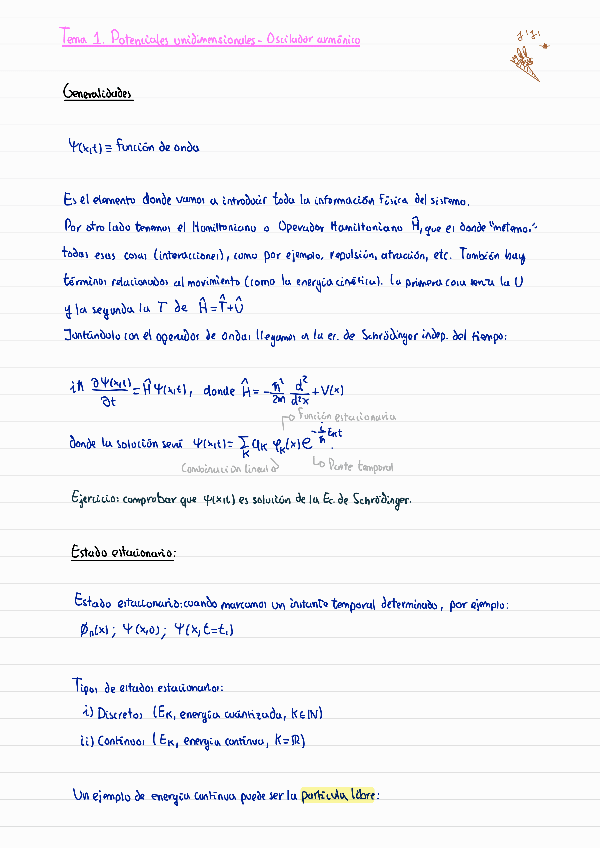 Tema 1. Potenciales unidimensionales - Oscilador armónico
Generalidades
Ψ(x,t) ≡ función de onda
Es el elemento donde vamos a introducir toda la información física del sistema.
Por otro lado tenemos el Hamiltoniano o Operador Hamiltoniano Ĥ, que es donde "metemos"
todas esas cosas (interacciones), como por ejemplo, repulsión, atracción, etc. También hay
términos relacionados al movimiento (como la energía cinética). La primera cosa sería la U
y la segunda la T de Ĥ = T̂ + Û
Juntándolo con el operador de onda: llegamos a la ec. de Schrödinger indep. del tiempo:
iħ ∂Ψ(x,t)/∂t = Ĥ Ψ(x,t), donde Ĥ = -ħ²/2m d²/d²x + V(x)
Función estacionaria
donde la solución será Ψ(x,t) = Σ_K a_K φ_K(x) e^(-i/ħ E_K t).
Combinación lineal
Parte temporal
Ejercicio: comprobar que Ψ(x,t) es solución de la Ec. de Schrödinger.
Estado estacionario:
Estado estacionario: cuando marcamos un instante temporal determinado, por ejemplo:
Ø_n(x); Ψ(x,0); Ψ(x, t=t₁)
Tipos de estados estacionarios:
i) Discretos (E_K, energía cuántizada, K∈ℕ)
ii) Continuos (E_K, energía continua, K=ℝ)
Un ejemplo de energía continua puede ser la partícula libre: